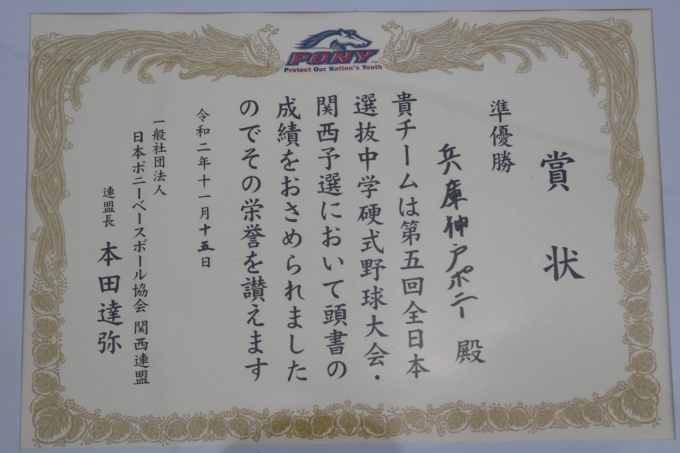 PONY
Protect Our Nation's Youth
賞状
準優勝
兵庫神戸ポニー 殿
貴チームは第五回全日本
選抜中学硬式野球大会・
関西予選において頭書の
成績をおさめられました
のでその栄誉を讃えます
令和二年十一月十五日
一般社団法人
日本ポニーベースボール協会 関西連盟
連盟長 本田達弥